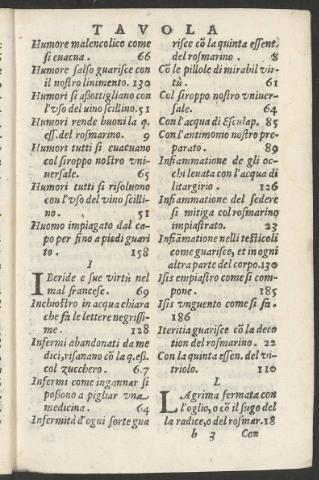 TAVOLA
Humore malencolico come
si euacua. 66
Humore salso guarisce con
il nostro linimento. 130
Humori si assottigliano con
l'vso del uino scillino. 51
Humori rende buoni la q.
ess. del rosmarino. 9
Humori tutti si euacuano
col siroppo nostro vni-
uersale. 65
Humori tutti si risoluono
con l'vso del vino scilli-
no. 51
Huomo impiagato dal ca-
po per fino a piedi guari
to. 158
I
IBeride e sue virtù nel
mal francese. 69
Inchiostro in acqua chiara
che fa le lettere negrissi-
me. 128
Infermi abandonati da me
dici, risanano cõ la q. ess.
col zucchero. 6.7
Infermi come ingannar si
possono a pigliar vna
medicina. 64
Infermità d'ogni sorte gua
risce cõ la quinta essent.
del rosmarino. 8
Cõ le pillole di mirabil vir-
tù. 61
Col siroppo nostro vniuer-
sale. 64
Con l'acqua di Esculap. 85
Con l'antimonio nostro pre-
parato. 89
Infiammatione de gli oc-
chi leuata con l'acqua di
litargirio. 126
Infiamatione del sedere
si mitiga col rosmarino
impiastrato. 23
Infiãmatione nelli testicoli
come guarisce, et in ogni
altra parte del corpo. 130
Isis empiastro come si com-
pone. 185
Isis vnguento come si fa.
186
Iteritia guarisce cõ la deco
tion del rosmarino. 22
Con la quinta essen. del vi-
triolo. 110
L
LAgrima fermata con
l'oglio, o cõ il sugo del
la radice, o del rosmar. 18
b 3 Con